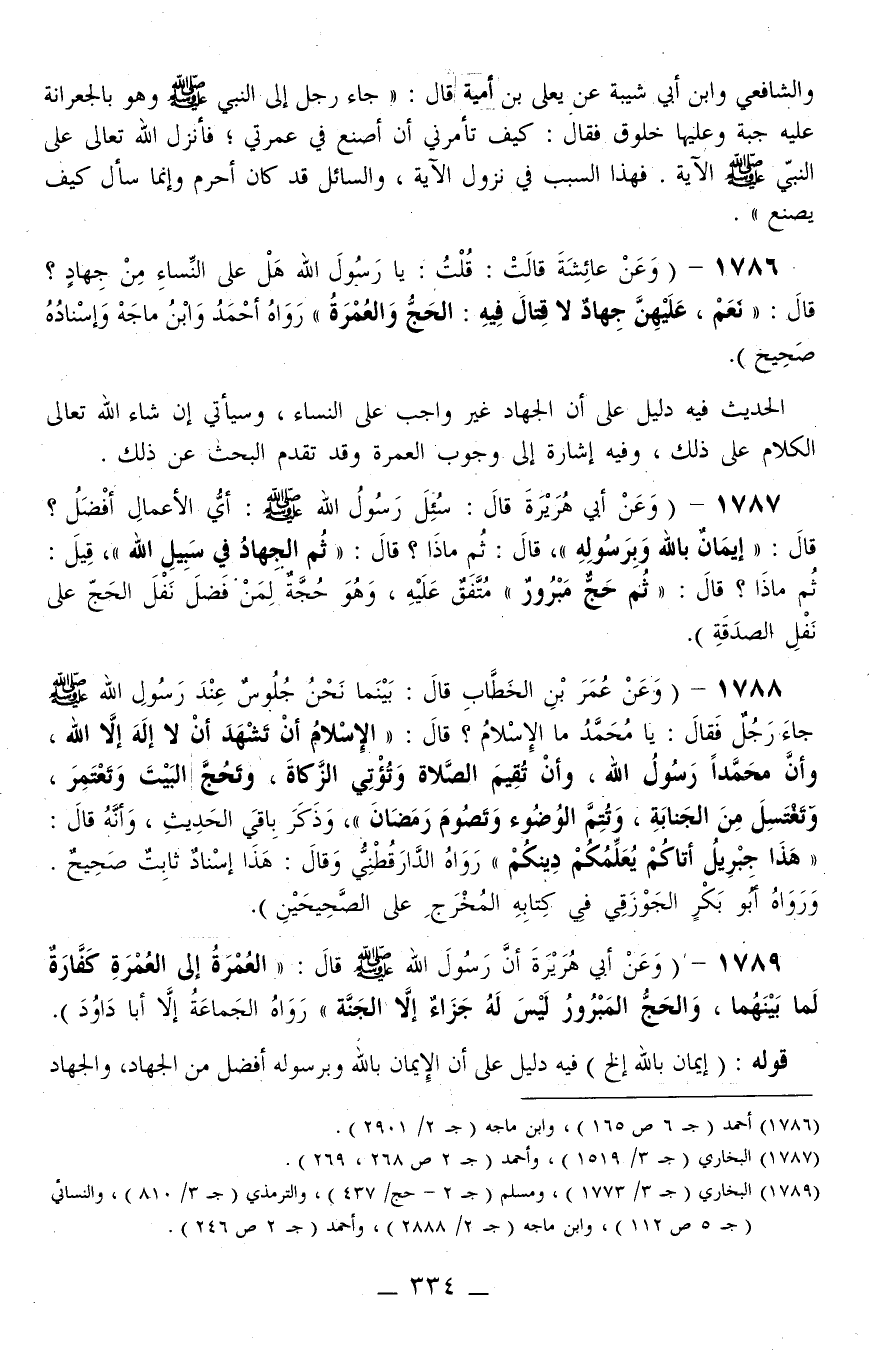 والشافعي وابن أبي شيبة عن يعلى بن أمية قال : « جاء رجل إلى النبي ﷺ وهو بالجعرانة
عليه جبة وعليها خلوق فقال : كيف تأمرني أن أصنع في عمرتي ؛ فأنزل الله تعالى على
النبيّ ﷺ الآية . فهذا السبب في نزول الآية ، والسائل قد كان أحرم وإنما سأل كيف
يصنع » .
١٧٨٦ – ( وَعَنْ عائِشَةَ قالَتْ : قُلْتُ : يا رَسُولَ الله هَلْ على النِّساءِ مِنْ جِهادٍ ؟
قالَ : « نَعَمْ ، عَلَيْهِنَّ جِهادٌ لا قِتالَ فِيهِ : الحَجُّ وَالعُمْرَةُ » رَوَاهُ أحْمَدُ وَابْنُ ماجَهْ وَإسْنادُهُ
صَحِيحٌ ).
الحديث فيه دليل على أن الجهاد غير واجب على النساء ، وسيأتي إن شاء الله تعالى
الكلام على ذلك ، وفيه إشارة إلى وجوب العمرة وقد تقدم البحث عن ذلك .
١٧٨٧ – ( وَعَنْ أبي هُرَيْرَةَ قالَ : سُئِلَ رَسُولُ الله ﷺ : أيُّ الأعمالِ أفْضَلُ ؟
قالَ : « إيمَانٌ بالله وَبِرَسُولِهِ »، قالَ : ثُم ماذَا ؟ قالَ : « ثُم الجِهادُ في سَبِيلِ الله »، قِيلَ :
ثُم ماذَا ؟ قالَ : « ثُم حَجٌّ مَبْرُورٌ » مُتَّفَقٌ عَلَيْهِ ، وَهُوَ حُجَّةٌ لِمَنْ فَضلَ نَفْلَ الحَجّ على
نَفْلِ الصدَقَةِ ).
١٧٨٨ – ( وَعَنْ عُمَرَ بْنِ الخَطَّابِ قالَ : بَيْنَما نَحْنُ جُلُوسٌ عِنْدَ رَسُولِ الله ﷺ
جاءَ رَجُلٌ فَقالَ : يا مُحَمَّدُ ما الإسْلامُ ؟ قالَ : « الإسْلامُ أنْ تَشْهَدَ أنْ لا إلَهَ إلَّا الله ،
وأنَّ محَمَّداً رَسُولُ الله ، وأنْ تُقِيمَ الصَّلاة وَتُؤْتِي الزَّكاةَ ، وَتَحُجَّ البَيْتَ وَتَعْتَمِرَ ،
وَتَغْتَسِلَ مِنَ الجَنابَةِ ، وَتُتِمَّ الوُضُوء وَتَصُومَ رَمَضَانَ »، وَذَكَرَ باقي الحَدِيثِ ، وَأنَّهُ قالَ :
« هَذَا جِبْرِيلُ أتاكُمْ يُعَلِّمُكُمْ دِينكُمْ » رَوَاهُ الدَّارَقُطْنِيُّ وَقالَ : هَذَا إسْنادٌ ثابِتٌ صَحِيحٌ .
وَرَوَاهُ أبُو بَكْرٍ الجَوْزَقِي فِي كِتابِهِ المُخْرَجِ على الصَّحِيحَيْنِ ).
١٧٨٩ – ( وَعَنْ أبي هُرَيْرَةَ أنَّ رَسُولَ الله ﷺ قالَ : « العُمْرَةُ إلى العُمْرَةِ كَفَّارَةٌ
لَما بَيْنَهُما ، وَالحَجُّ المَبْرُورُ لَيْسَ لَهُ جَزَاءٌ إلَّا الجَنَّة » رَوَاهُ الجَماعَةُ إلَّا أبا دَاوُدَ ).
قوله : ( إيمان بالله إلخ ) فيه دليل على أن الإيمان بالله وبرسوله أفضل من الجهاد، والجهاد
(١٧٨٦) أحمد ( جـ ٦ ص ١٦٥ ) ، وابن ماجه ( جـ ٢/ ٢٩٠١ ) .
(١٧٨٧) البخاري ( جـ ٣/ ١٥١٩ ) ، وأحمد ( جـ ٢ ص ٢٦٨ ، ٢٦٩ ) .
(١٧٨٩) البخاري ( جـ ٣/ ١٧٧٣ ) ، ومسلم ( جـ ٢ – حج/ ٤٣٧ ) ، والترمذي ( جـ ٣/ ٨١٠ ) ، والنسائي
( جـ ٥ ص ١١٢ ) ، وابن ماجه ( جـ ٢/ ٢٨٨٨ ) ، وأحمد ( جـ ٢ ص ٢٤٦ ) .
– ٣٣٤ –